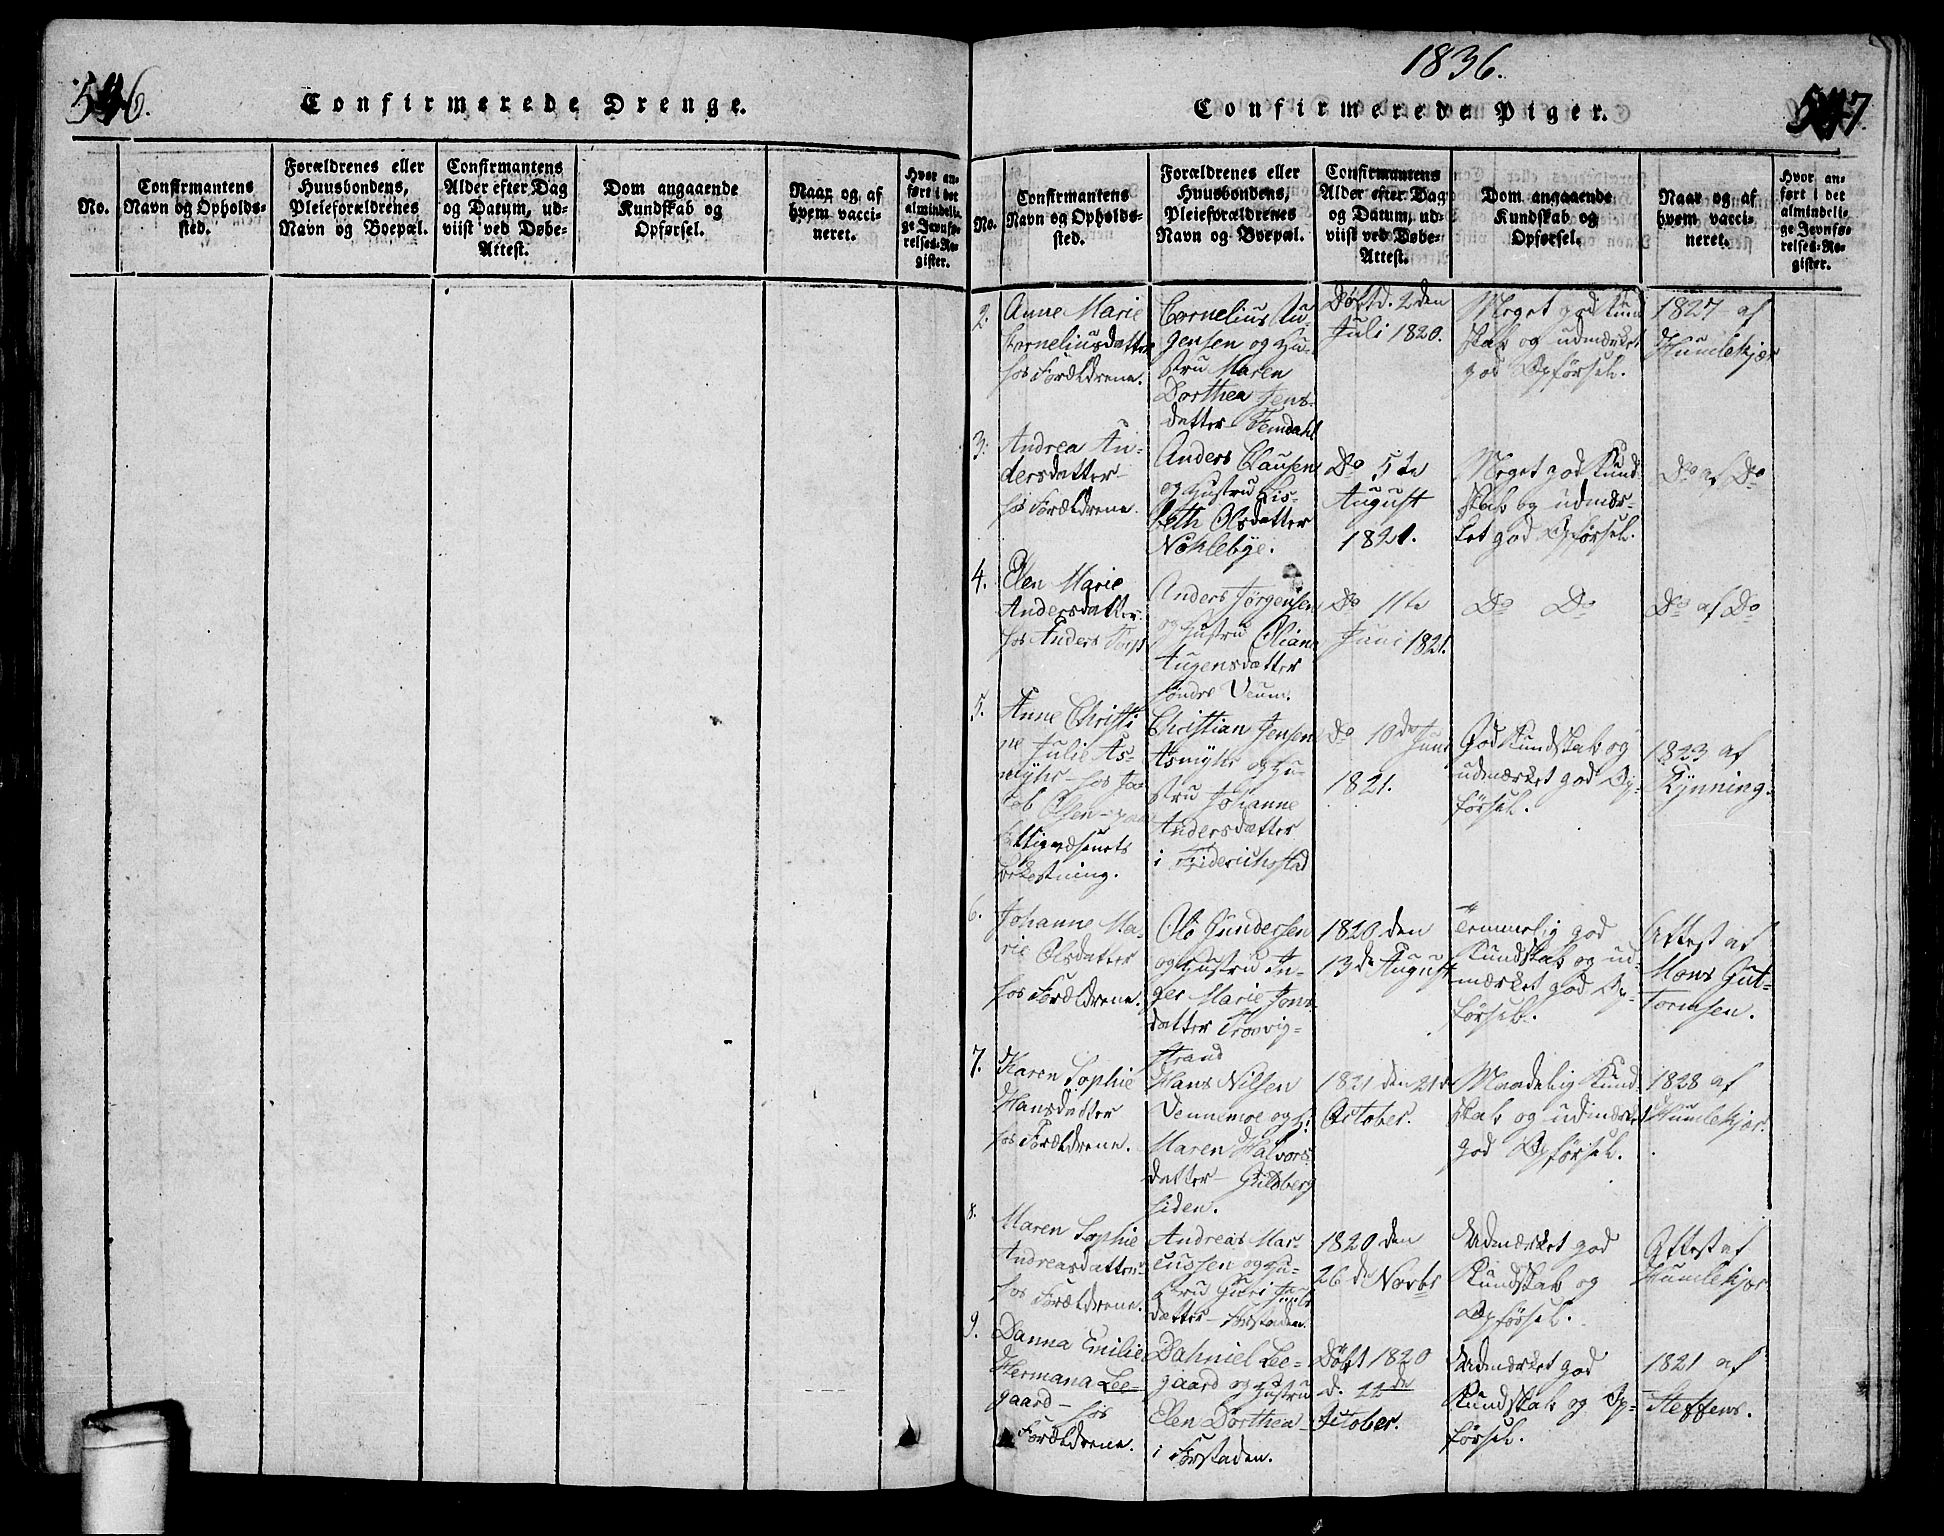 546.
Confirmerede Drenge.
No.
Confirmantens
Navn og Opholds-
sted.
Forældrenes eller
Huusbondens,
Pleieforældrenes
Navn og Boepæl.
Confirmantens
Alder efter Dag
og Datum, ud-
viist ved Døbe-
Attest.
Dom angaaende
Kundskab og
Opførsel.
Naar og af
hvem vacci-
neret.
Hvor an-
ført i det
almindeli-
ge Jevnfø-
relses-Re-
gister.
1836.
Confirmerede Piger.
547.
No.
Confirmantens
Navn og Opholds-
sted.
Forældrenes eller
Huusbondens,
Pleieforældrenes
Navn og Boepæl.
Confirmantens
Alder efter Dag
og Datum, ud-
viist ved Døbe-
Attest.
Dom angaaende
Kundskab og
Opførsel.
Naar og af
hvem vacci-
neret.
Hvor an-
ført i det
almindeli-
ge Jevnfø-
relses-Re-
gister.
2.
Anne Marie
Corneliusdatter
hos Forældrene.
Cornelius Ju-
gensen og Hu-
stru Maren
Dorthea Jens-
datter Femdahl
Døbt d. 2 den
Juli 1820.
Meget god Kund
skab og udmærket
god Opførsel.
1827 af
Humlekjær
3.
Andrea An-
dersdatter
hos Forældrene.
Anders Clausen
og Hustru Lis-
beth Olsdatter
Nohlebye.
Do 5te
August
1821.
Meget god Kund-
skab og udmær-
ket god Opførsel.
Do af Do
4.
Elen Marie
Andersdatter
hos Anders
Anders Jørgensen
og Hustru Oliana
Augensdatter
søndre Veum.
Do 11te
Juni 1821.
Do Do
Do af Do
5.
Anne Christi
ne Julie As-
myhr hos Ja-
cob Olsen
Fattigvæsenets
Bekostning.
Christian Jensen
Asmyhr og Hu-
stru Johanne
Andersdatter
i Friderichstad
Do 10de Juni
1821.
God Kundskab og
udmærket god Op-
førsel.
1823 af
Kynning.
6.
Johanne Ma-
rie Olsdatter
hos Forældrene.
Ole Gundersen
og Hustru In-
ger Marie Jons-
datter Trosvig-
strand
1820 den
13de August
Temmelig god
Kundskab og ud-
mærket god Op-
førsel.
Attest af
Mons Gut-
tormsen.
7.
Karen Sophie
Hansdatter
hos Forældrene.
Hans Nilsen
Vennemoe og H.
Maren Halvors
datter Guldberg
siden.
1821 den 21de
October.
Maadelig Kund-
skab og udmærket
god Opførsel.
1828 af
Humlekjær.
8.
Maren Sophie
Andreasdatter
hos Forældrene.
Andreas Mar-
cussen og Hu-
stru Guri
datter Forstaden.
1820 den
26de Novbr
Udmærket god
Kundskab og
Opførsel.
Attest af
Humlekjær
9.
Danna Emilie
Hermana Lee-
gaard
hos
Forældrene.
Dahniel Lee-
gaard og Hustru
Elen Dorthea
i Forstaden.
Døbt 1820
d. 22de
October.
Udmærket god
Kundskab og Op-
førsel.
1821 af
Steffens.